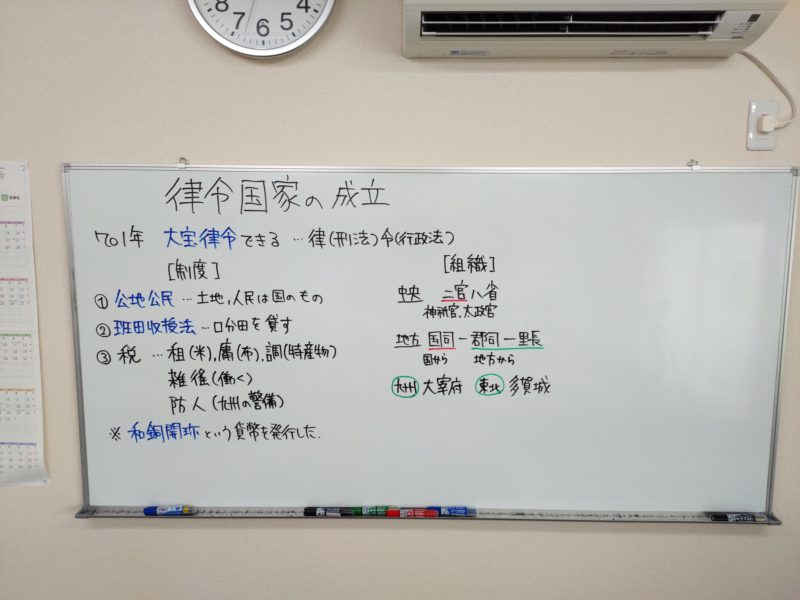 8 7 6 5 4
律令国家の成立
701年 大宝律令できる …律(刑法)令(行政法)
[制度]
① 公地公民 …土地,人民は国のもの
② 班田収授法 …口分田を貸す
③ 税 …租(米),庸(布),調(特産物)
雑徭(働く)
防人(九州の警備)
※ 和銅開珎という貨幣を発行した.
[組織]
中央 二官八省
神祇官,太政官
地方 国司ー郡司ー里長
国から 地方から
九州 大宰府 東北 多賀城